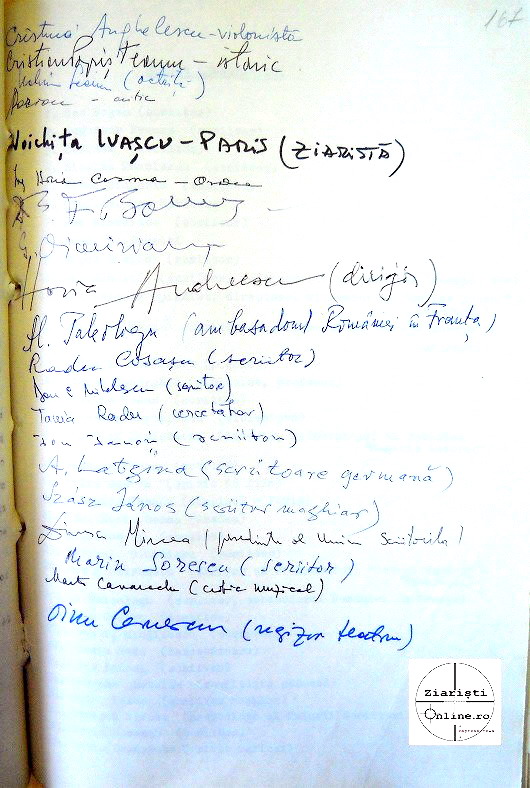 167
Cristina Anghelescu - violonistă
Cristian Popișteanu - istoric
(actriță)
- critic
Voichița IVAȘCU - PARIS (ZIARISTĂ)
Ing Horia Cosma - Oradea
Horia Andreescu (dirijor)
Al. Paleologu (ambasadorul României în Franța)
Radu Cosașu (scriitor)
(scriitor)
Radu (cercetător)
Ion Ianoși (scriitor)
A. Latzina (scriitoare germană)
Szász János (scriitor maghiar)
Dinescu Mircea (președinte al Uniunii Scriitorilor)
Marin Sorescu (scriitor)
(critic muzical)
Dinu Cernescu (regizor teatru)
Ziariști
Online.ro